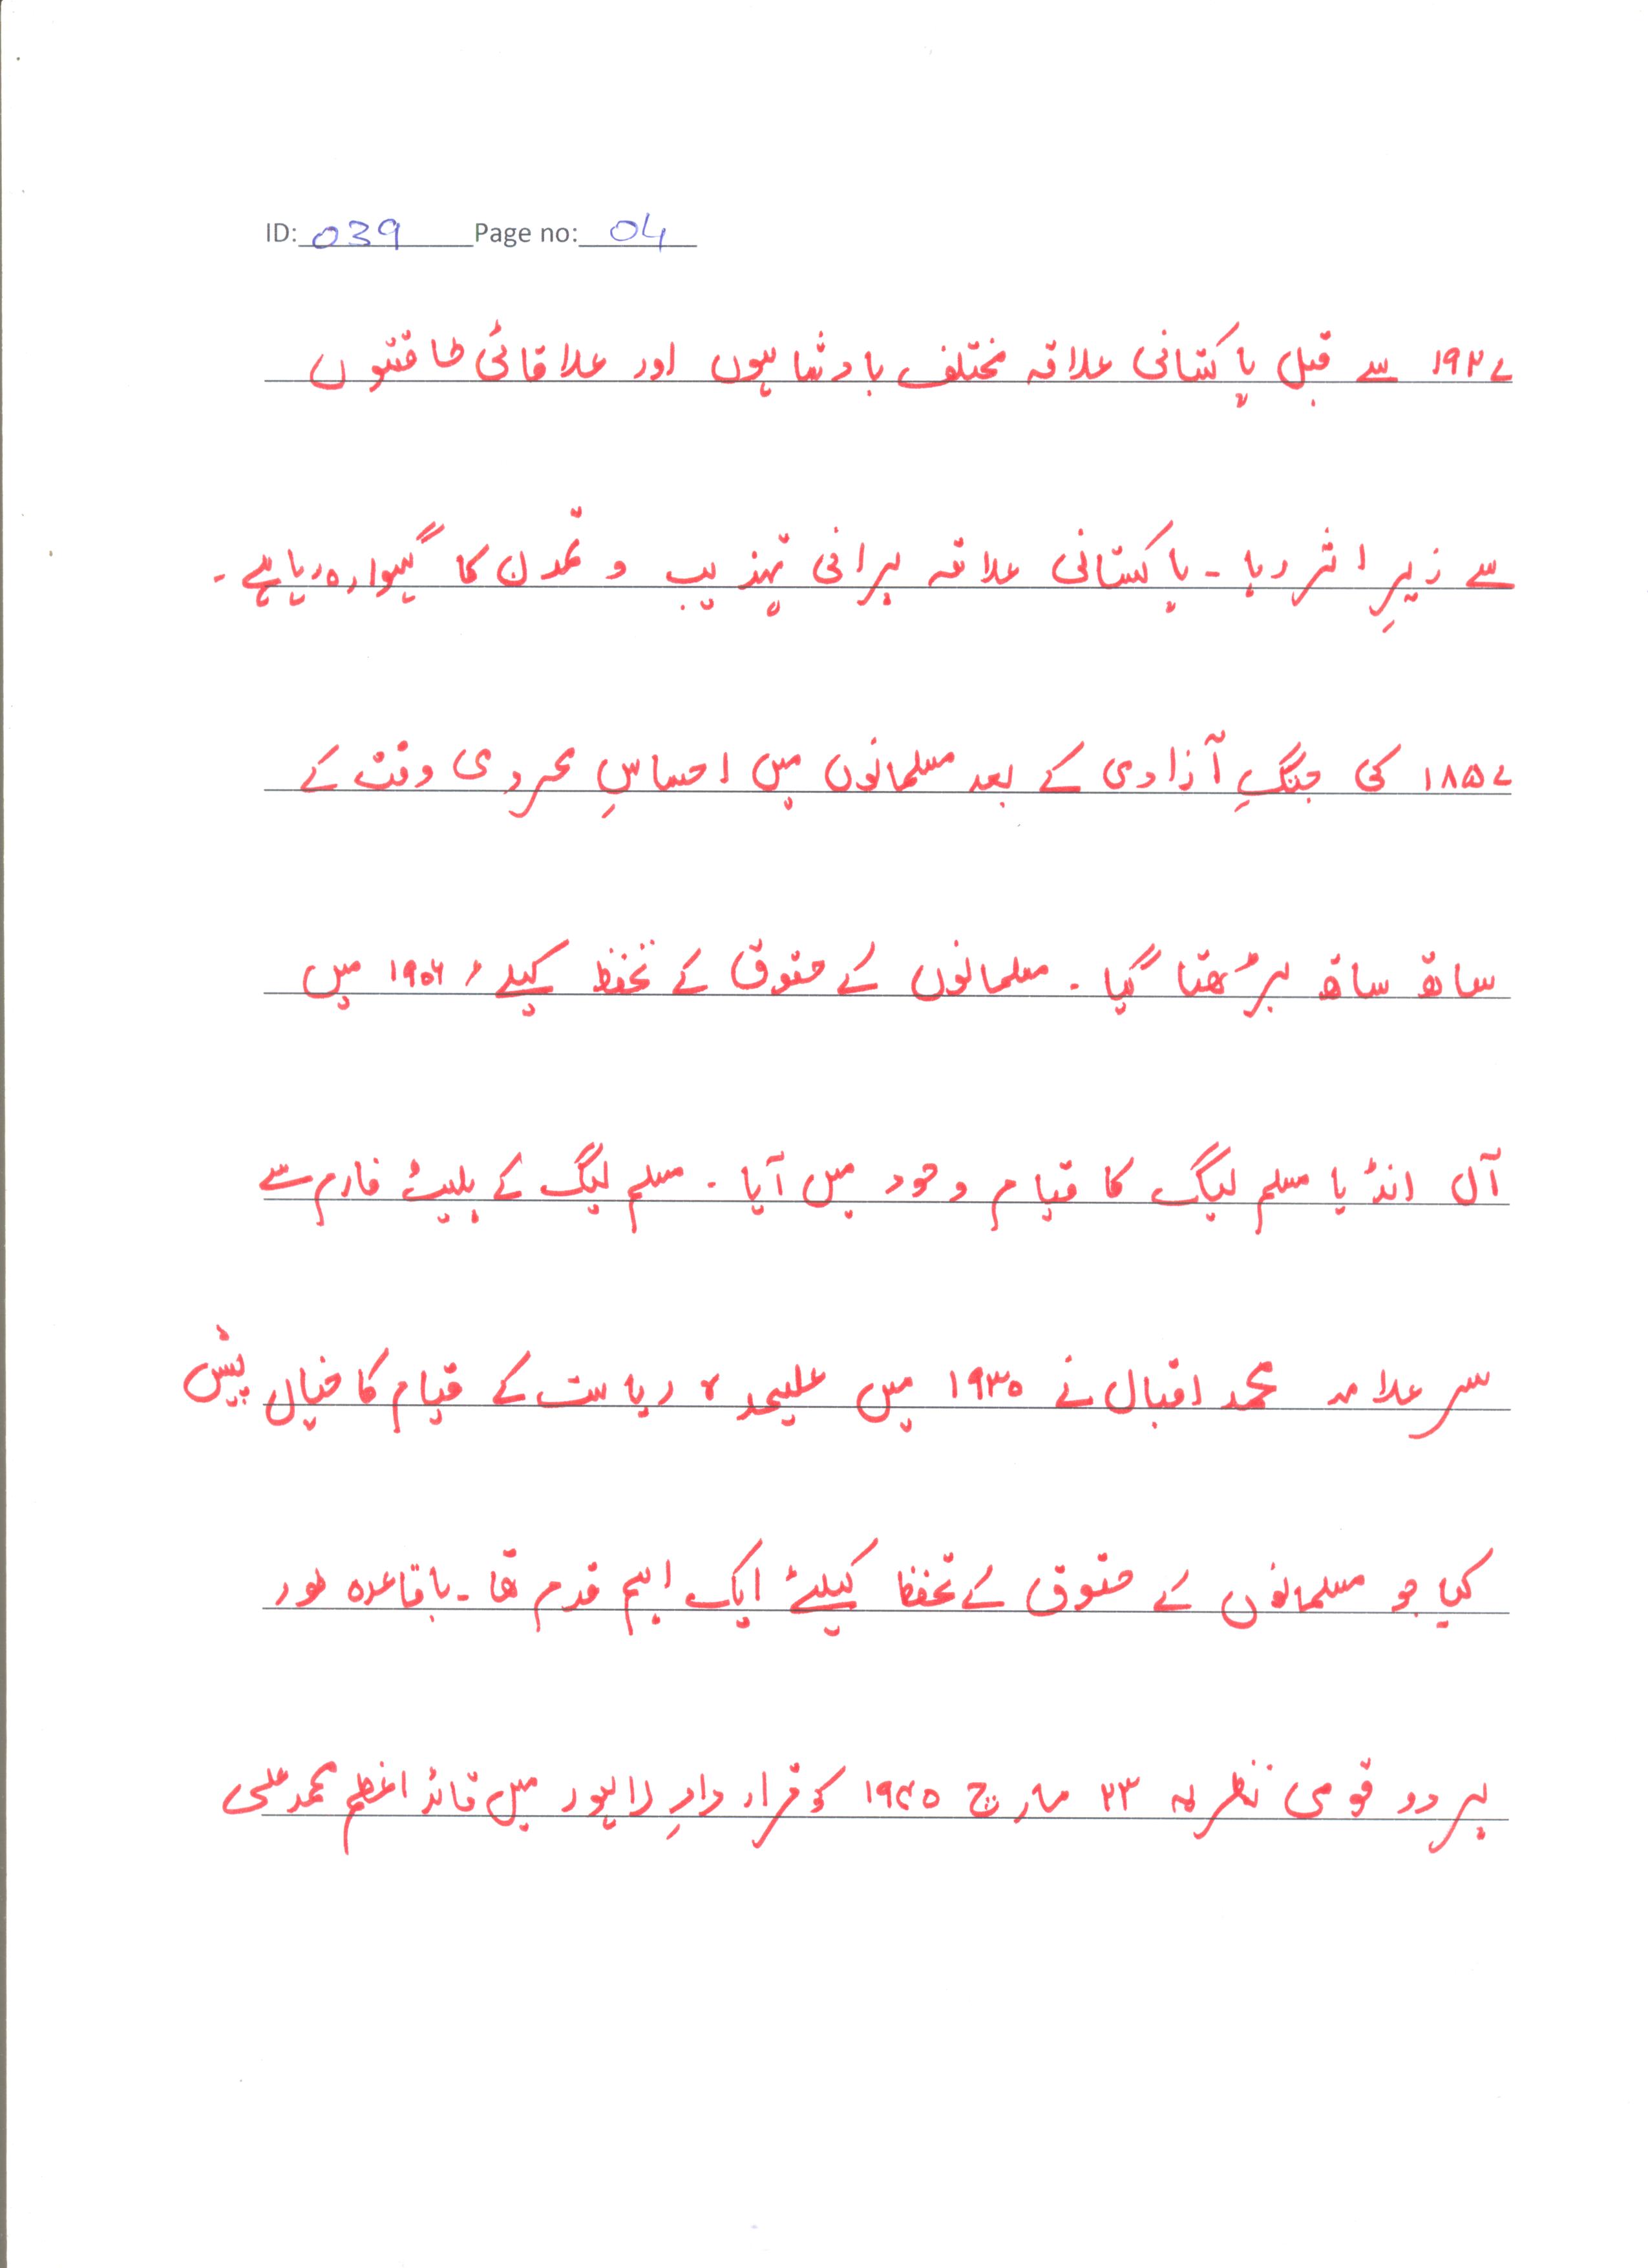 ID: 039 Page no: 04
۱۹۴۷ سے قبل پاکستانی علاقہ مختلف بادشاہوں اور علاقائی طاقتوں
سے زیرِ اثر رہا ۔ پاکستانی علاقہ پرانی تہذیب و تمدن کا گہوارہ رہا ہے ۔
۱۸۵۷ کی جنگِ آزادی کے بعد مسلمانوں میں احساسِ محرومی وقت کے
ساتھ ساتھ بڑھتا گیا ۔ مسلمانوں کے حقوق کے تحفظ کیلئے ۱۹۰۶ میں
آل انڈیا مسلم لیگ کا قیام وجود میں آیا ۔ مسلم لیگ کے پلیٹ فارم سے
سر علامہ محمد اقبال نے ۱۹۳۰ میں علیحدہ ریاست کے قیام کا خیال پیش
کیا جو مسلمانوں کے حقوق کے تحفظ کیلئے ایک اہم قدم تھا ۔ باقاعدہ طور
پر دو قومی نظریہ ۲۳ مارچ ۱۹۴۰ کو قرار دادِ لاہور میں قائد اعظم محمد علی